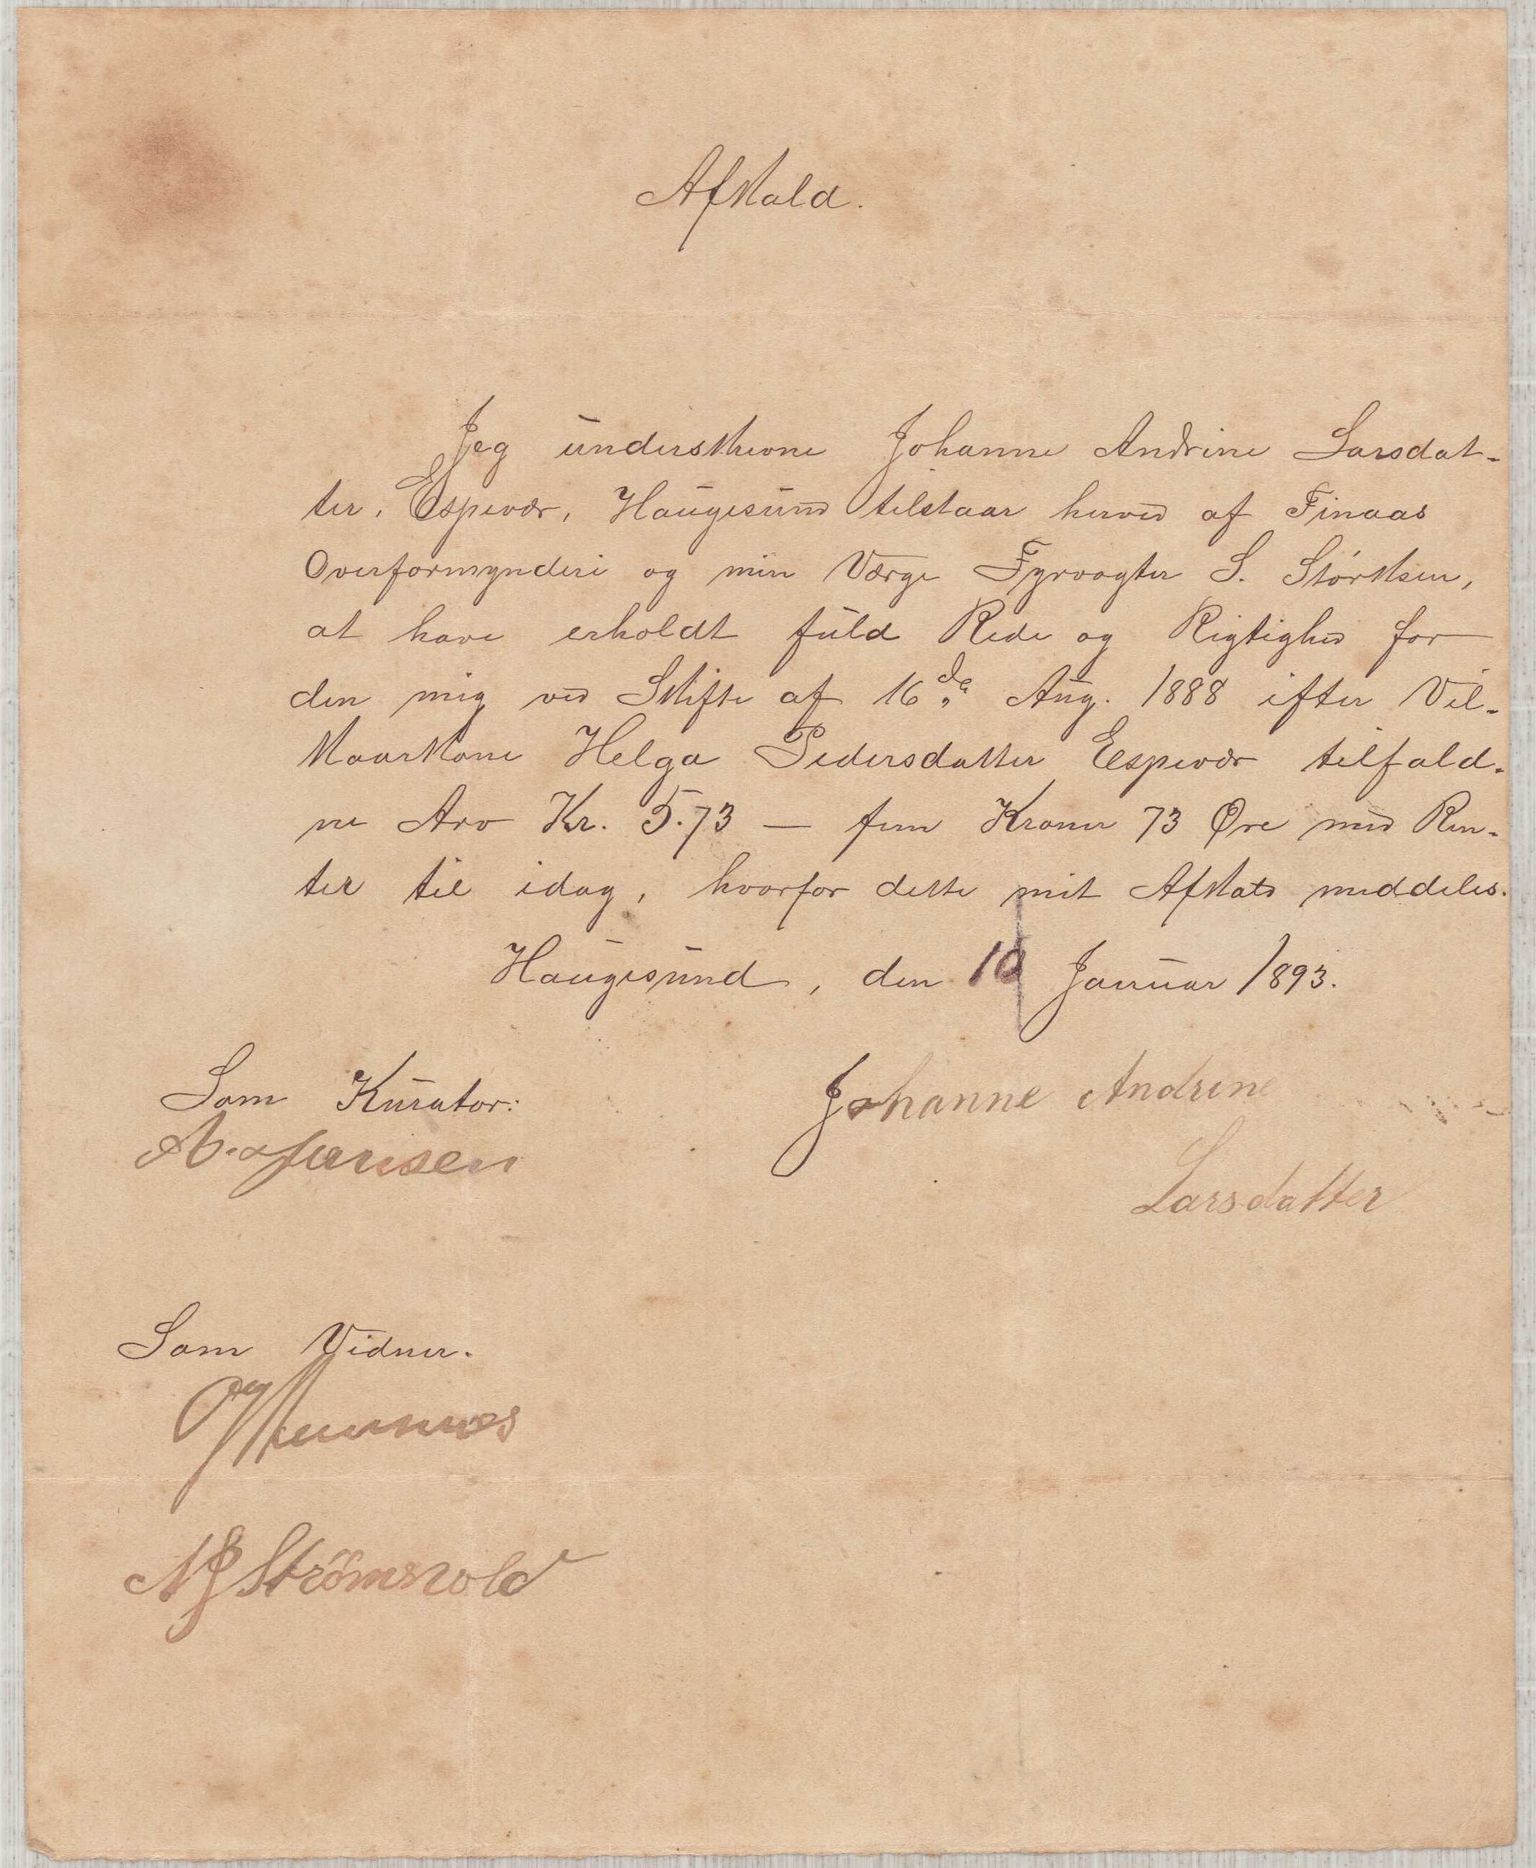 Afkald.
Jeg underskrevne Johanne Andrine Larsdat-
ter, Espevær, Haugesund tilstaar herved af Finaas
Overformynderi og min Værge Fyrvogter S. Störksen,
at have erholdt fuld Rede og Rigtighed for
den mig ved Skifte af 16de Aug. 1888 efter Vil-
kaarkone Helga Pedersdatter Espevær tilfald-
ne Arv Kr. 5.73 — fem Kroner 73 Øre med Ren-
ter til idag, hvorfor dette mit Afkald meddeles.
Haugesund, den 10 Januar 1893.
Som Kurator:
Johanne Andrine
Larsdatter
Som Vidner.
Strömsvold